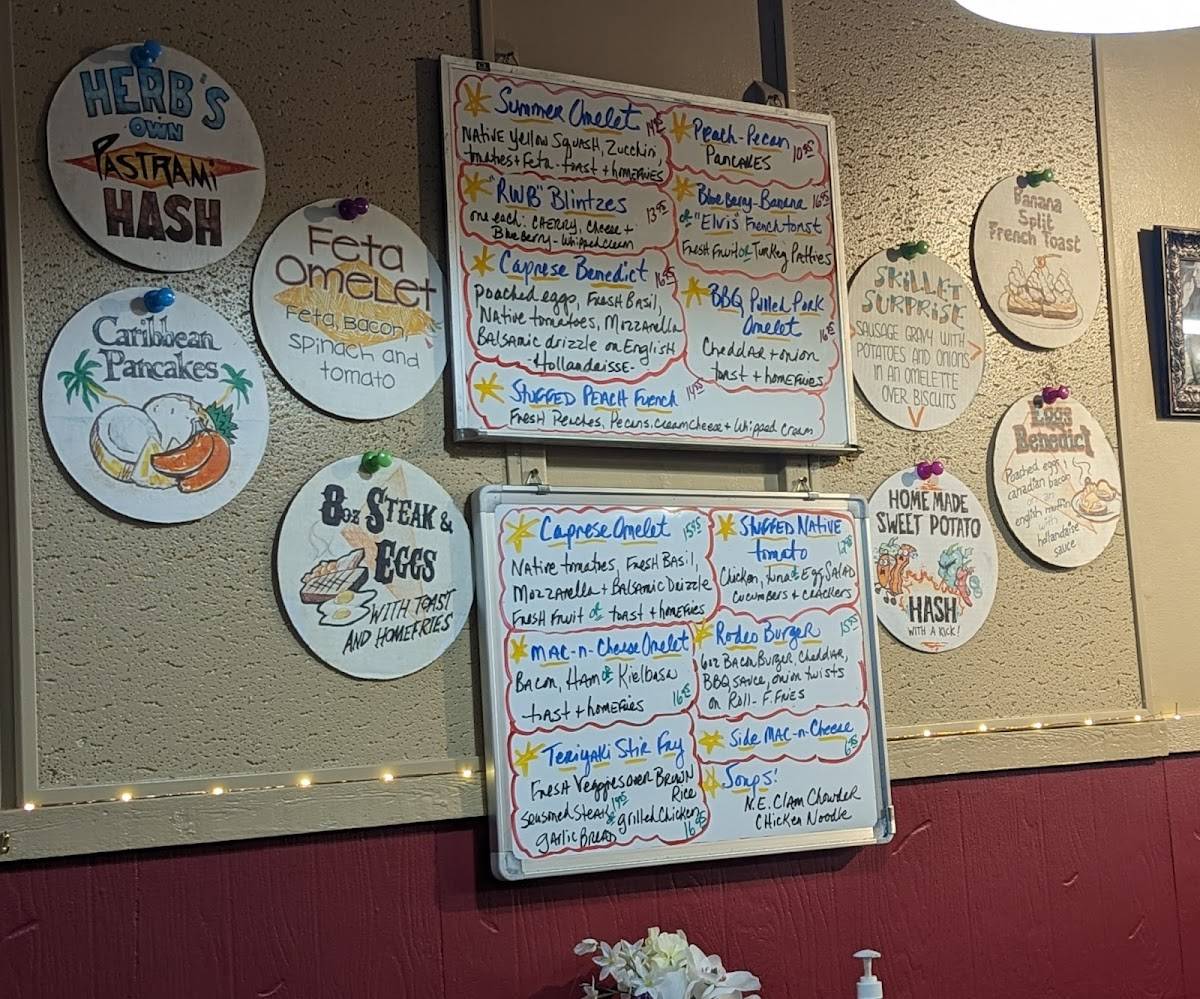 HERB'S
OWN
PASTRAMI
HASH
Caribbean
Pancakes
Feta
Omelet
Feta, Bacon,
Spinach and
tomato
8oz STEAK &
EGGS
WITH TOAST
AND HOMEFRIES
Summer Omelet
Native Yellow Squash, Zucchini
tomatoes + Feta - toast + homefries
"RWB" Blintzes 13.95
one each: CHERRY, Cheese +
Blueberry - whipped cream
Caprese Benedict
Poached eggs, Fresh Basil,
Native tomatoes, Mozzarella
Balsamic drizzle on English
-Hollandaisse-
Peach-Pecan 10.95
PANCAKES
Blueberry-Banana 16.95
or "Elvis" French toast
Fresh Fruit or Turkey Patties
BBQ Pulled Pork
Omelet
Cheddar + onion
toast + homefries
STUFFED PEACH French 14.95
Fresh Peaches, Pecans, cream cheese + whipped cream
Caprese Omelet 15.95
Native tomatoes, Fresh Basil,
Mozzarella + Balsamic Drizzle
Fresh Fruit or toast + homefries
MAC-n-Cheese Omelet
Bacon, Ham or Kielbasa
toast + homefries
Teriyaki Stir Fry
Fresh Veggies over Brown
Rice
seasoned Steak 19.95 or grilled Chicken
garlic Bread 16.95
STUFFED NATIVE
tomato 12.95
Chicken, tuna or Egg Salad
cucumbers + crackers
Rodeo Burger 15.95
6oz Bacon Burger, Cheddar,
BBQ sauce, onion twists
on Roll - F. Fries
Side MAC-n-Cheese
6.95
Soups!
N.E. Clam Chowder
Chicken Noodle
SKILLET
SURPRISE
SAUSAGE GRAVY WITH
POTATOES AND ONIONS
IN AN OMELETTE
OVER BISCUITS
Banana
Split
French Toast
HOME MADE
SWEET POTATO
HASH
WITH A KICK!
Eggs
Benedict
Poached eggs
canadian bacon
an
english muffin
with
hollandaise
sauce